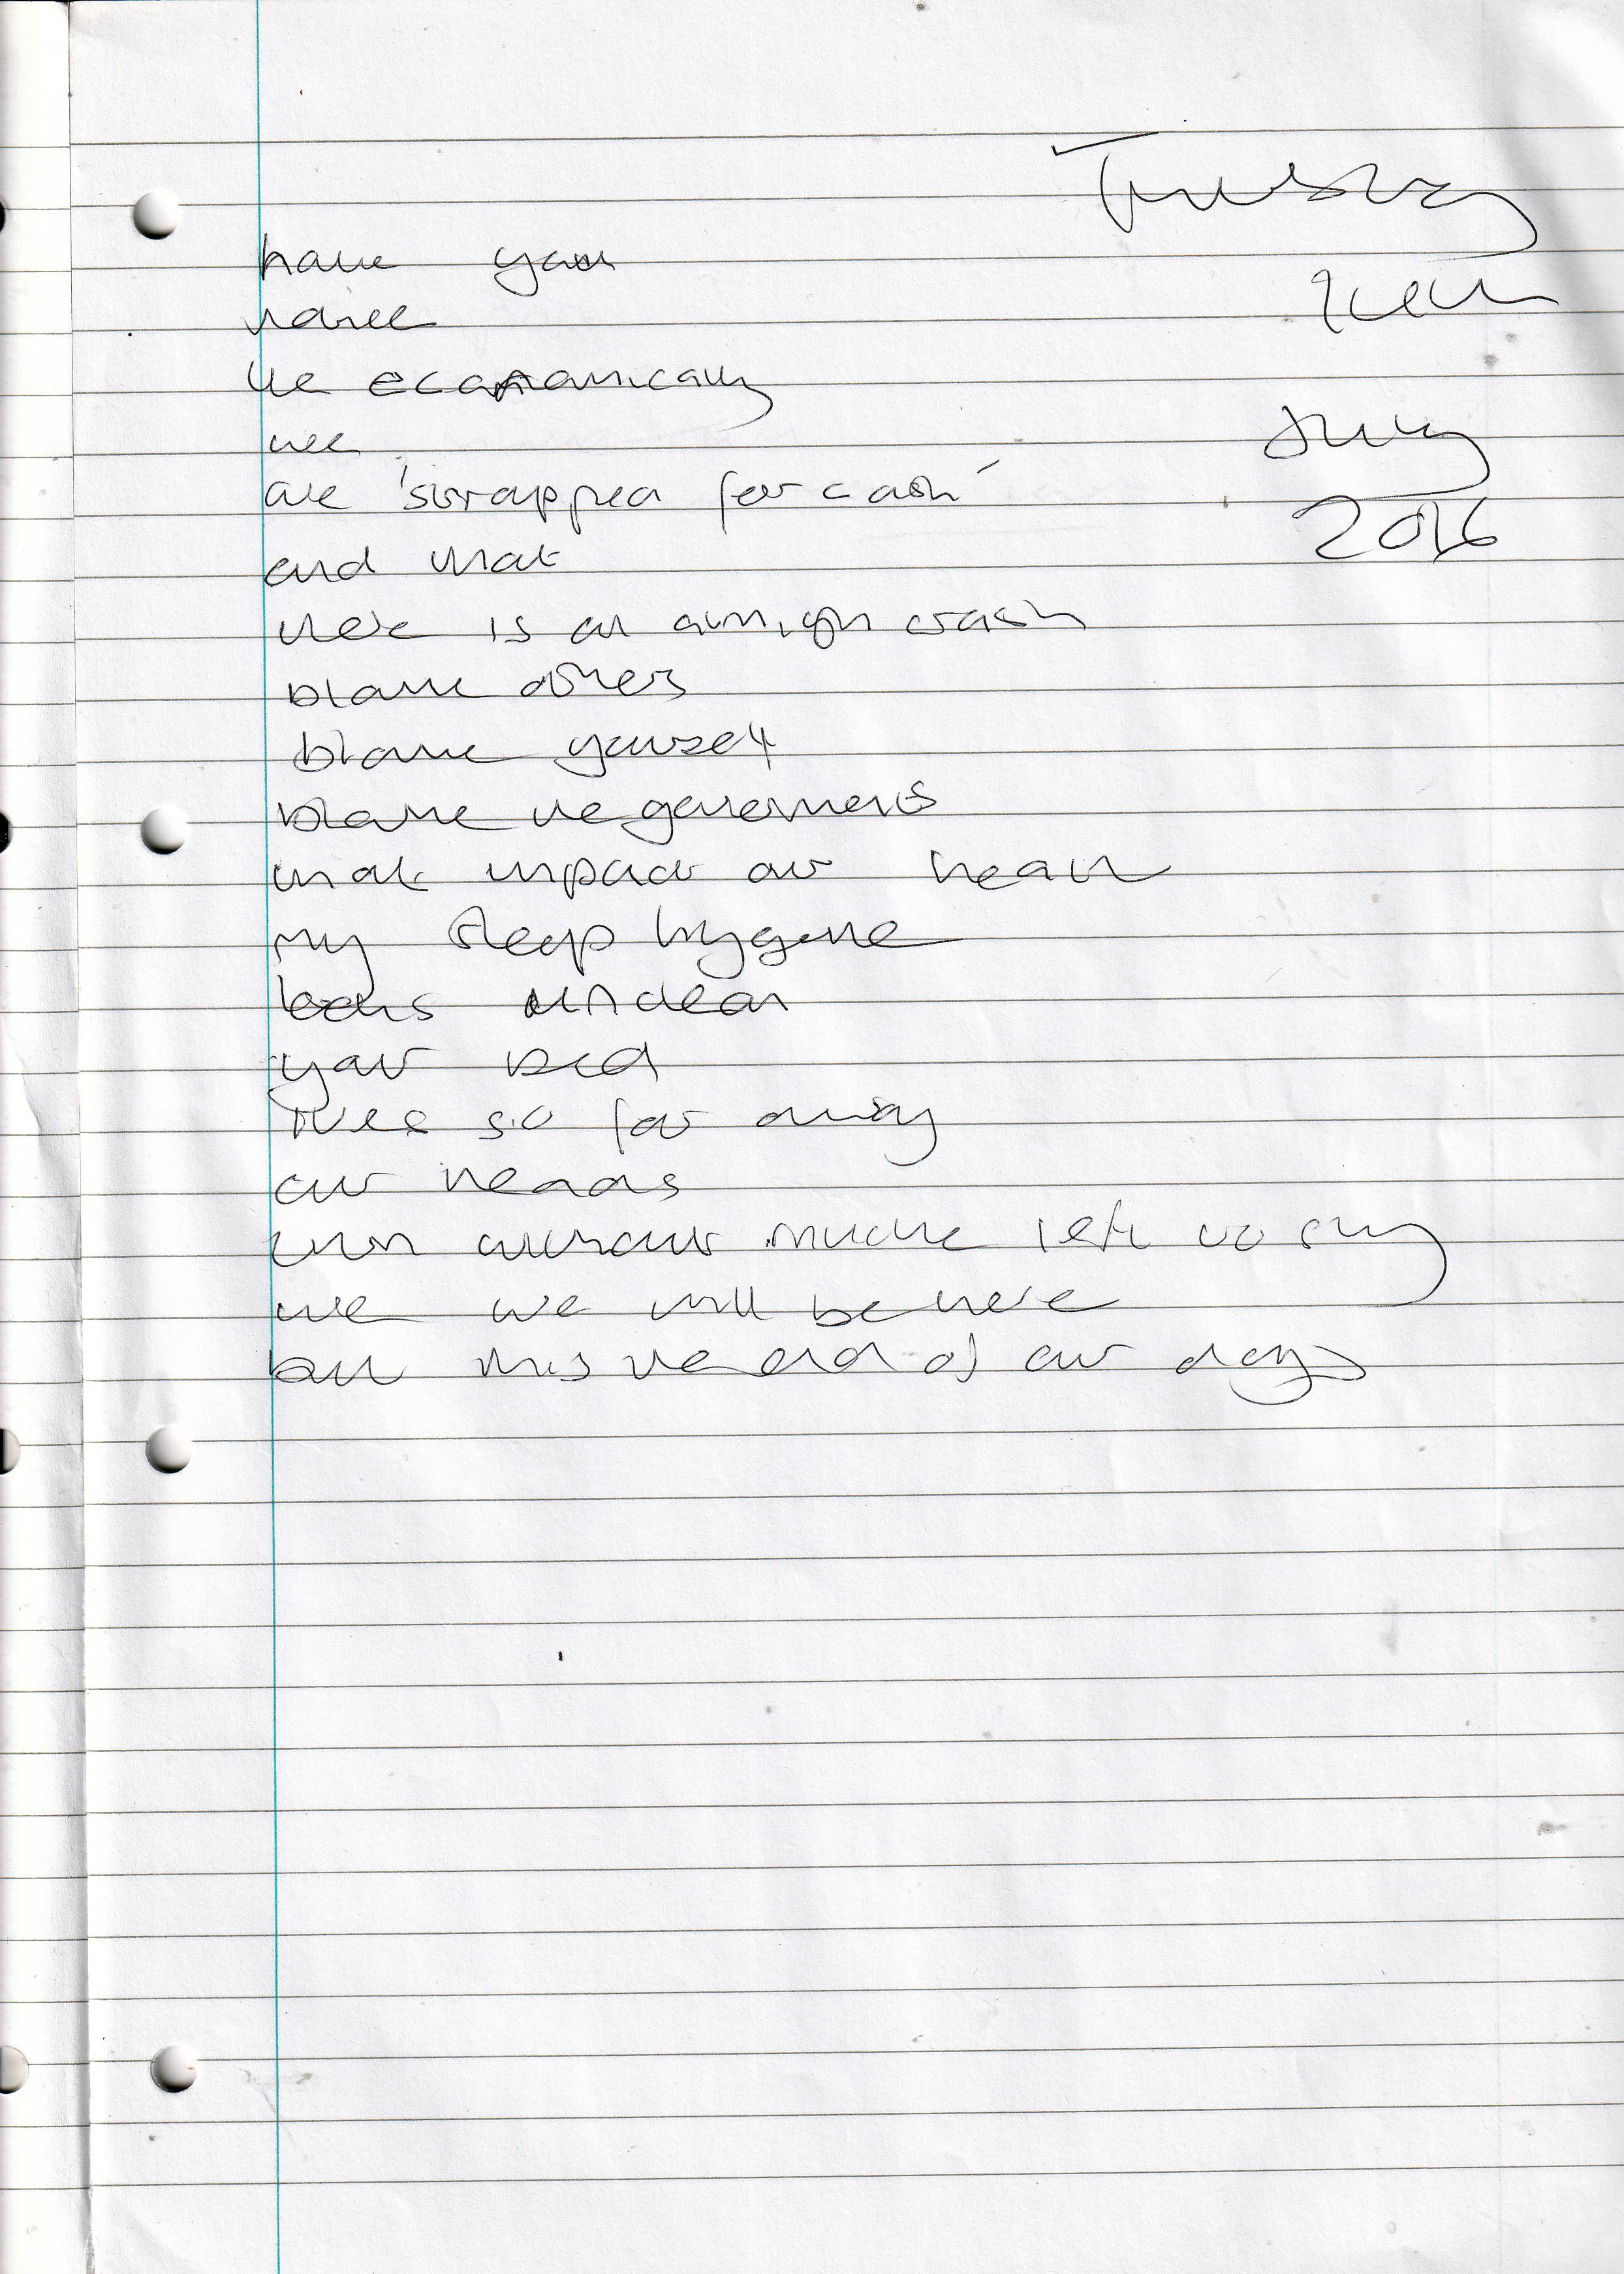 Thursday
July
2016
have you
noticed
the economically
we
are 'strapped for cash'
and that
there is an almighty crash
blame others
blame yourself
blame the governments
that impact our health
my sleep hygiene
looks unclean
your bed
miles so far away
our heads
with without much left to say
we will be here
but this the end of our days